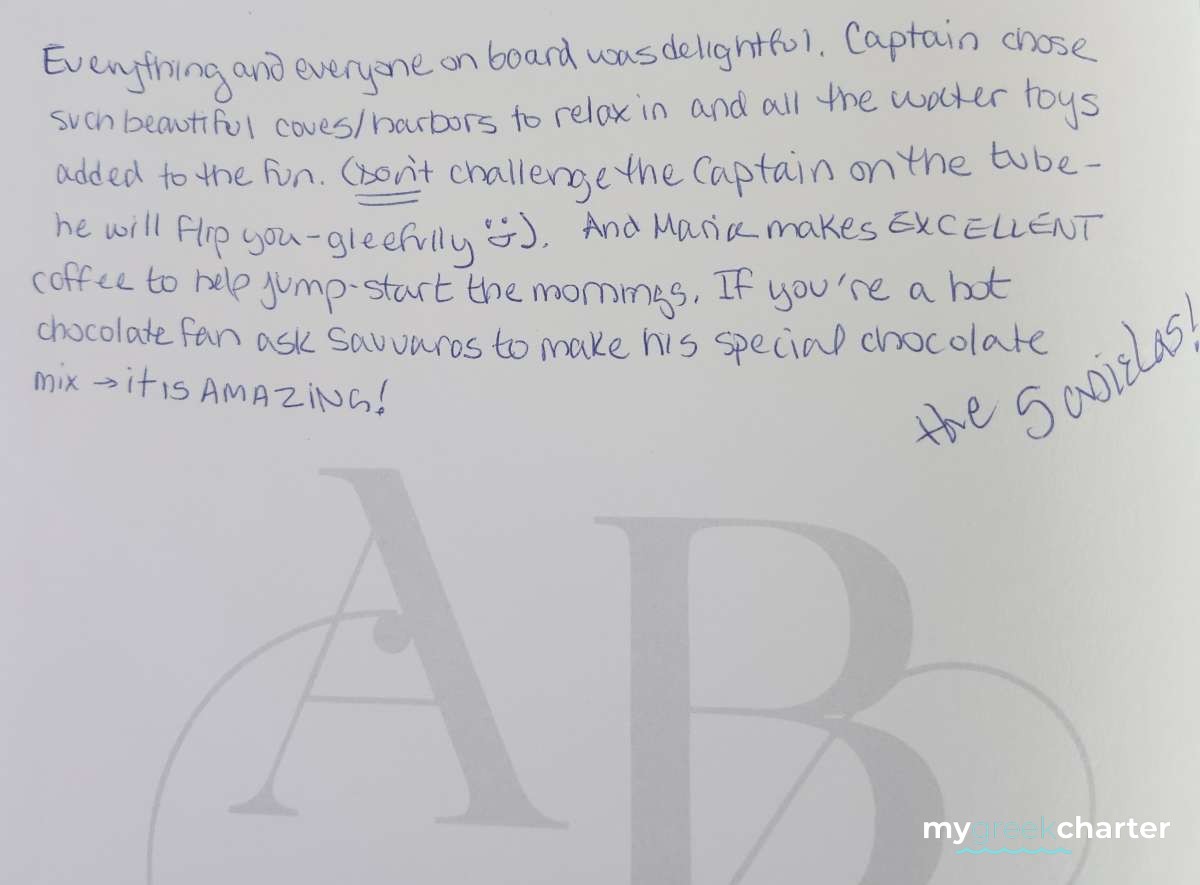 Everything and everyone on board was delightful. Captain chose
such beautiful coves/harbors to relax in and all the water toys
added to the fun. (Don't challenge the Captain on the tube-
he will flip you-gleefully :)). And Maria makes EXCELLENT
coffee to help jump-start the mornings. If you're a hot
chocolate fan ask Savvaros to make his special chocolate
mix → it is AMAZING!
the
AB
mygreekcharter